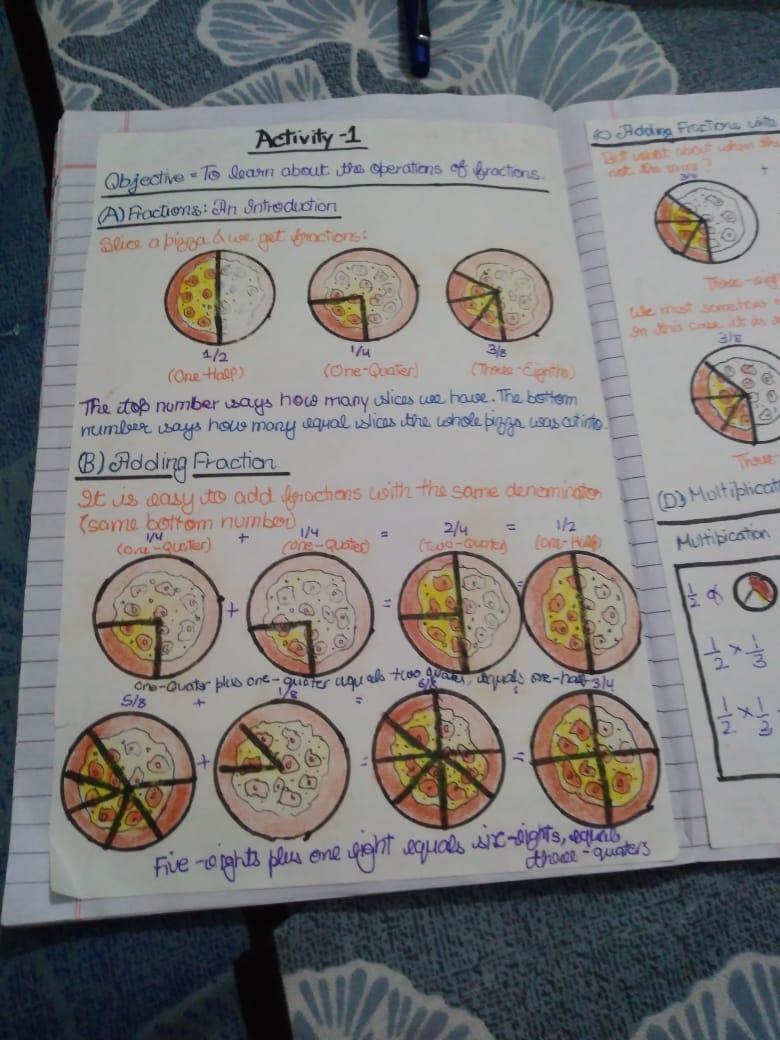 Activity-1
Objective = To learn about the operations of fractions.
(A) Fractions: An Introduction
Slice a pizza & we get fractions:
1/2 1/4 3/8
(One-Half) (One-Quater) (Three-Eighths)
The top number says how many slices we have. The bottom
number says how many equal slices the whole pizza was cut into.
(B) Adding Fraction
It is easy to add fractions with the same denominator
(same bottom number)
1/4 + 1/4 = 2/4 = 1/2
(one-quater) (one-quater) (Two-Quater) (One-Half)
+ = =
One-Quater plus one-quater equals two quater, equals one-half
5/8 + 1/8 = 6/8 = 3/4
+ = =
Five-eights plus one eight equals six-eights, equal
three-quaters
(C) Adding Fractions with
But what about when the
not the same?
3/8 +
Three-eigh
We must somehow
In this case it is
3/8
Three-
(D) Multiplicat
Multipication
1/2 of
1/2 × 1/3
1/2 × 1/3